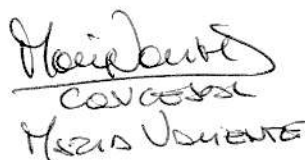 CONCEJAL
MARIA VALIENTE